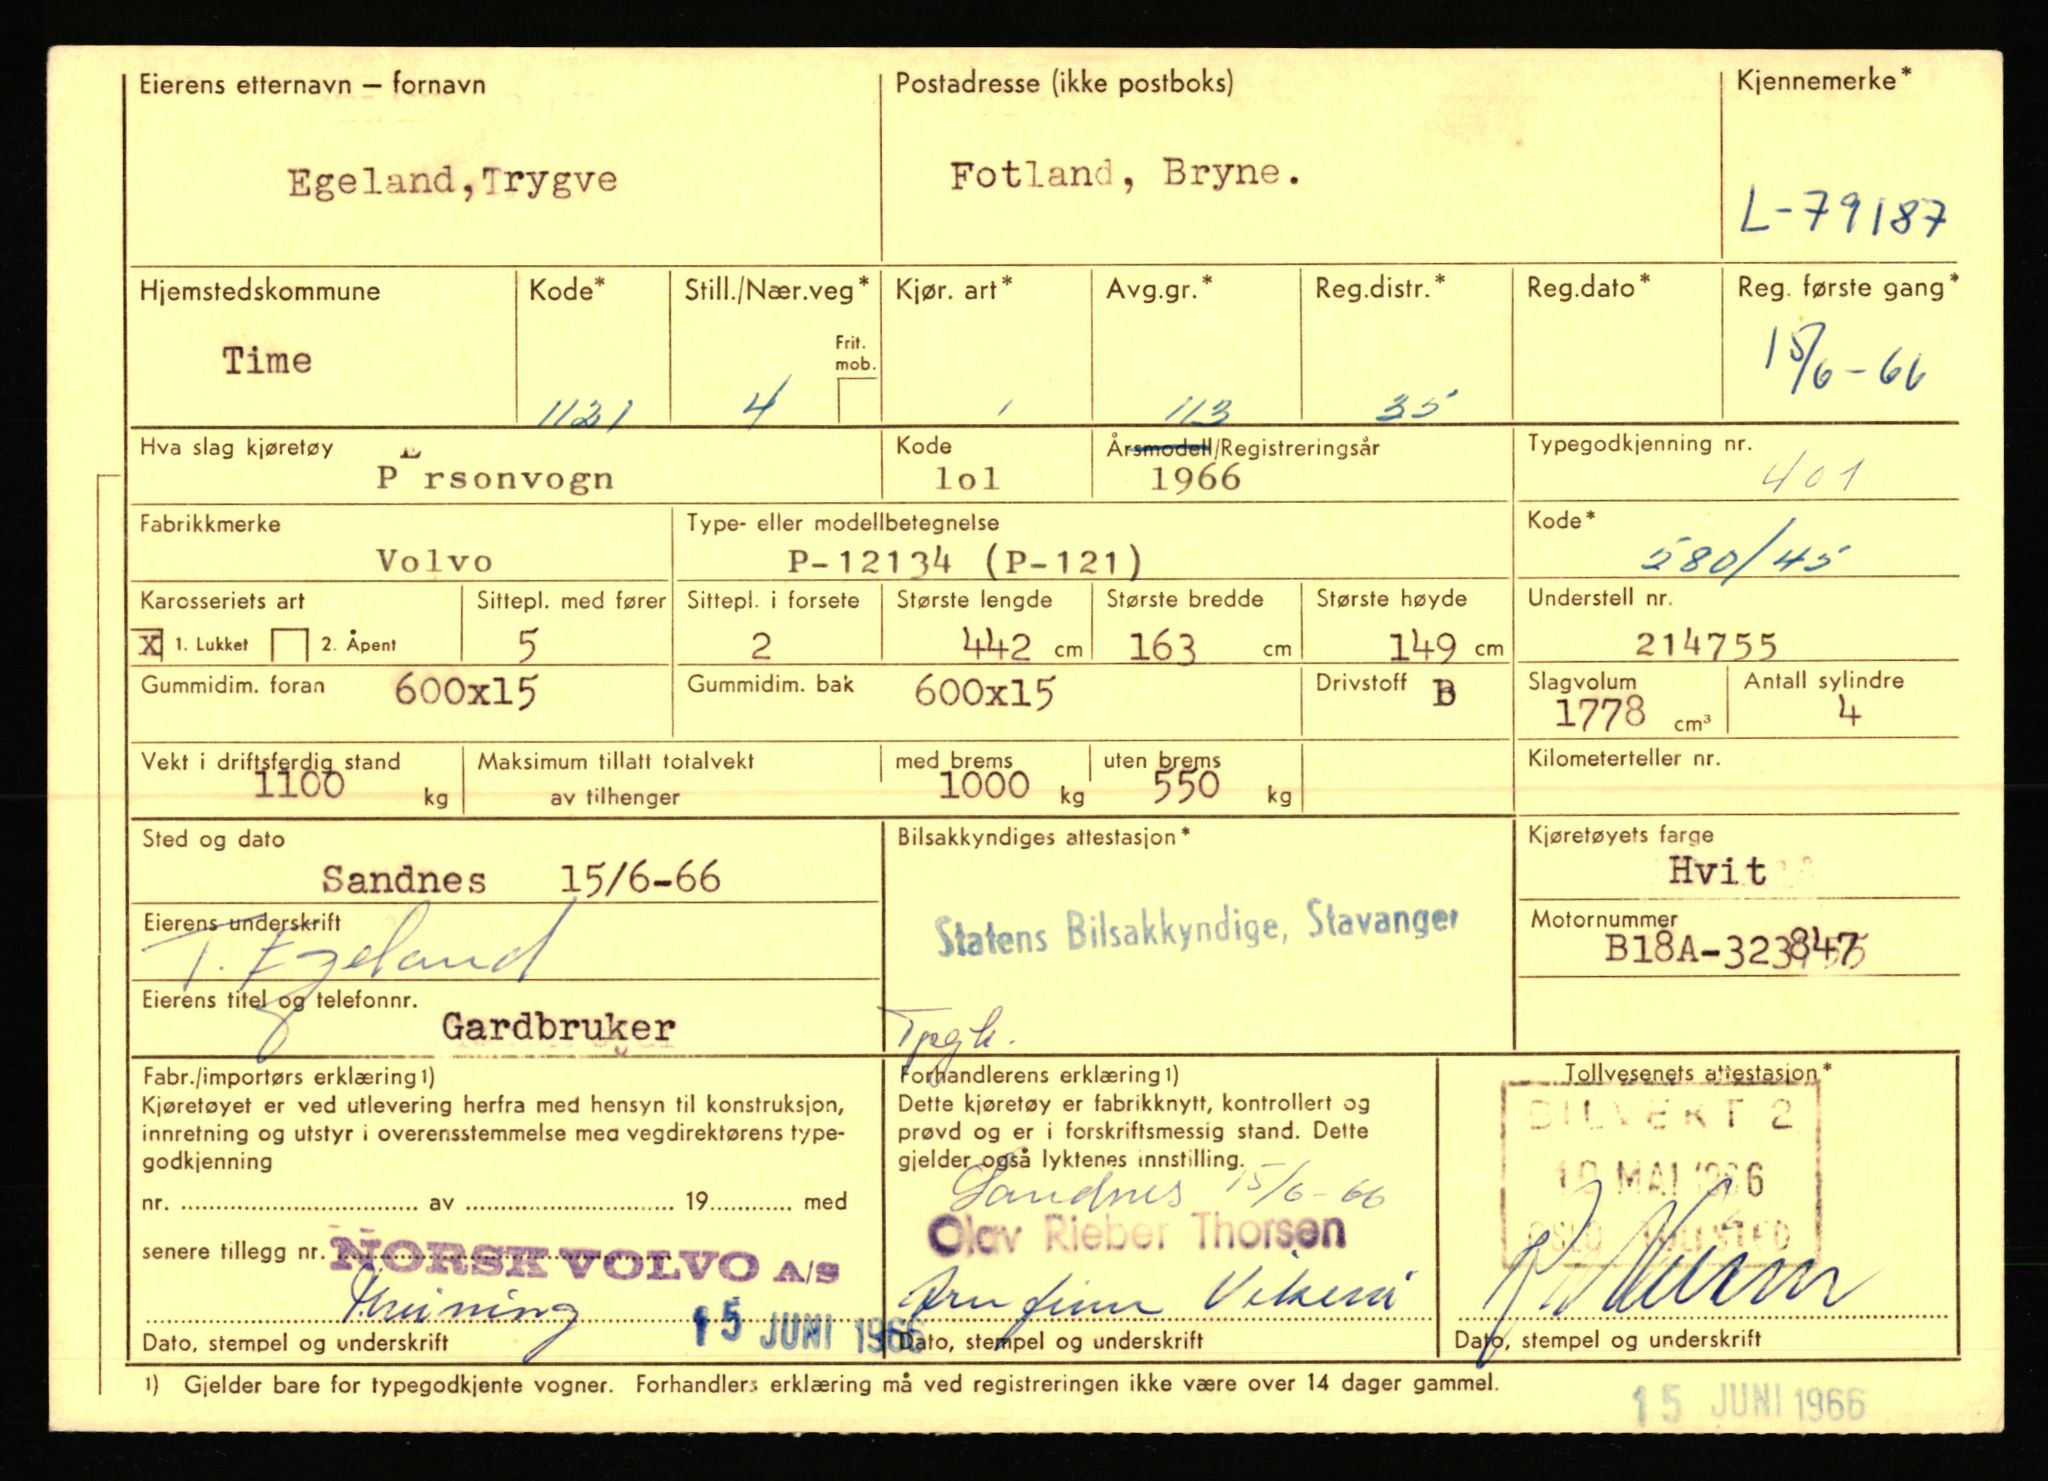 Eierens etternavn — fornavn
Postadresse (ikke postboks)
Kjennemerke*
Egeland,Trygve
Fotland, Bryne.
L-79187
Hjemstedskommune
Kode*
Still./Nær.veg*
Kjør. art*
Avg.gr.*
Reg.distr.*
Reg.dato*
Reg. første gang*
Time
Frit. mob.
15/6-66
1121
4
1
113
35
Hva slag kjøretøy
Kode
Årsmodell/Registreringsår
Typegodkjenning nr.
PErsonvogn
lol
1966
401
Fabrikkmerke
Type- eller modellbetegnelse
Kode*
Volvo
P-12134 (P-121)
580/45
Karosseriets art
Sittepl. med fører
Sittepl. i forsete
Største lengde
Største bredde
Største høyde
Understell nr.
X 1. Lukket 2. Åpent
5
2
442 cm
163 cm
149 cm
214755
Gummidim. foran 600x15
Gummidim. bak 600x15
Drivstoff B
Slagvolum
Antall sylindre
1778 cm³
4
Vekt i driftsferdig stand
Maksimum tillatt totalvekt
med brems
uten brems
Kilometerteller nr.
1100 kg
av tilhenger
1000 kg
550 kg
Sted og dato
Bilsakkyndiges attestasjon*
Kjøretøyets farge
Sandnes 15/6-66
Hvit
Eierens underskrift
Statens Bilsakkyndige, Stavanger
Motornummer
T. Egeland
B18A-323847
Eierens titel og telefonnr.
Gardbruker
Tpgk.
Fabr./importørs erklæring1)
Kjøretøyet er ved utlevering herfra med hensyn til konstruksjon,
innretning og utstyr i overensstemmelse med vegdirektørens type-
godkjenning
nr. .......... av .......... 19.......... med
senere tillegg nr.
NORSK VOLVO A/S
15 JUNI 1966
Dato, stempel og underskrift
Forhandlerens erklæring1)
Dette kjøretøy er fabrikknytt, kontrollert og
prøvd og er i forskriftsmessig stand. Dette
gjelder også lyktenes innstilling.
Sandnes 15/6-66
Olav Rieber Thorsen
Dato, stempel og underskrift
Tollvesenets attestasjon*
BILVERT 2
MAI 1966
OSLO TOLLSTED
Dato, stempel og underskrift
1) Gjelder bare for typegodkjente vogner. Forhandlers erklæring må ved registreringen ikke være over 14 dager gammel.
15 JUNI 1966